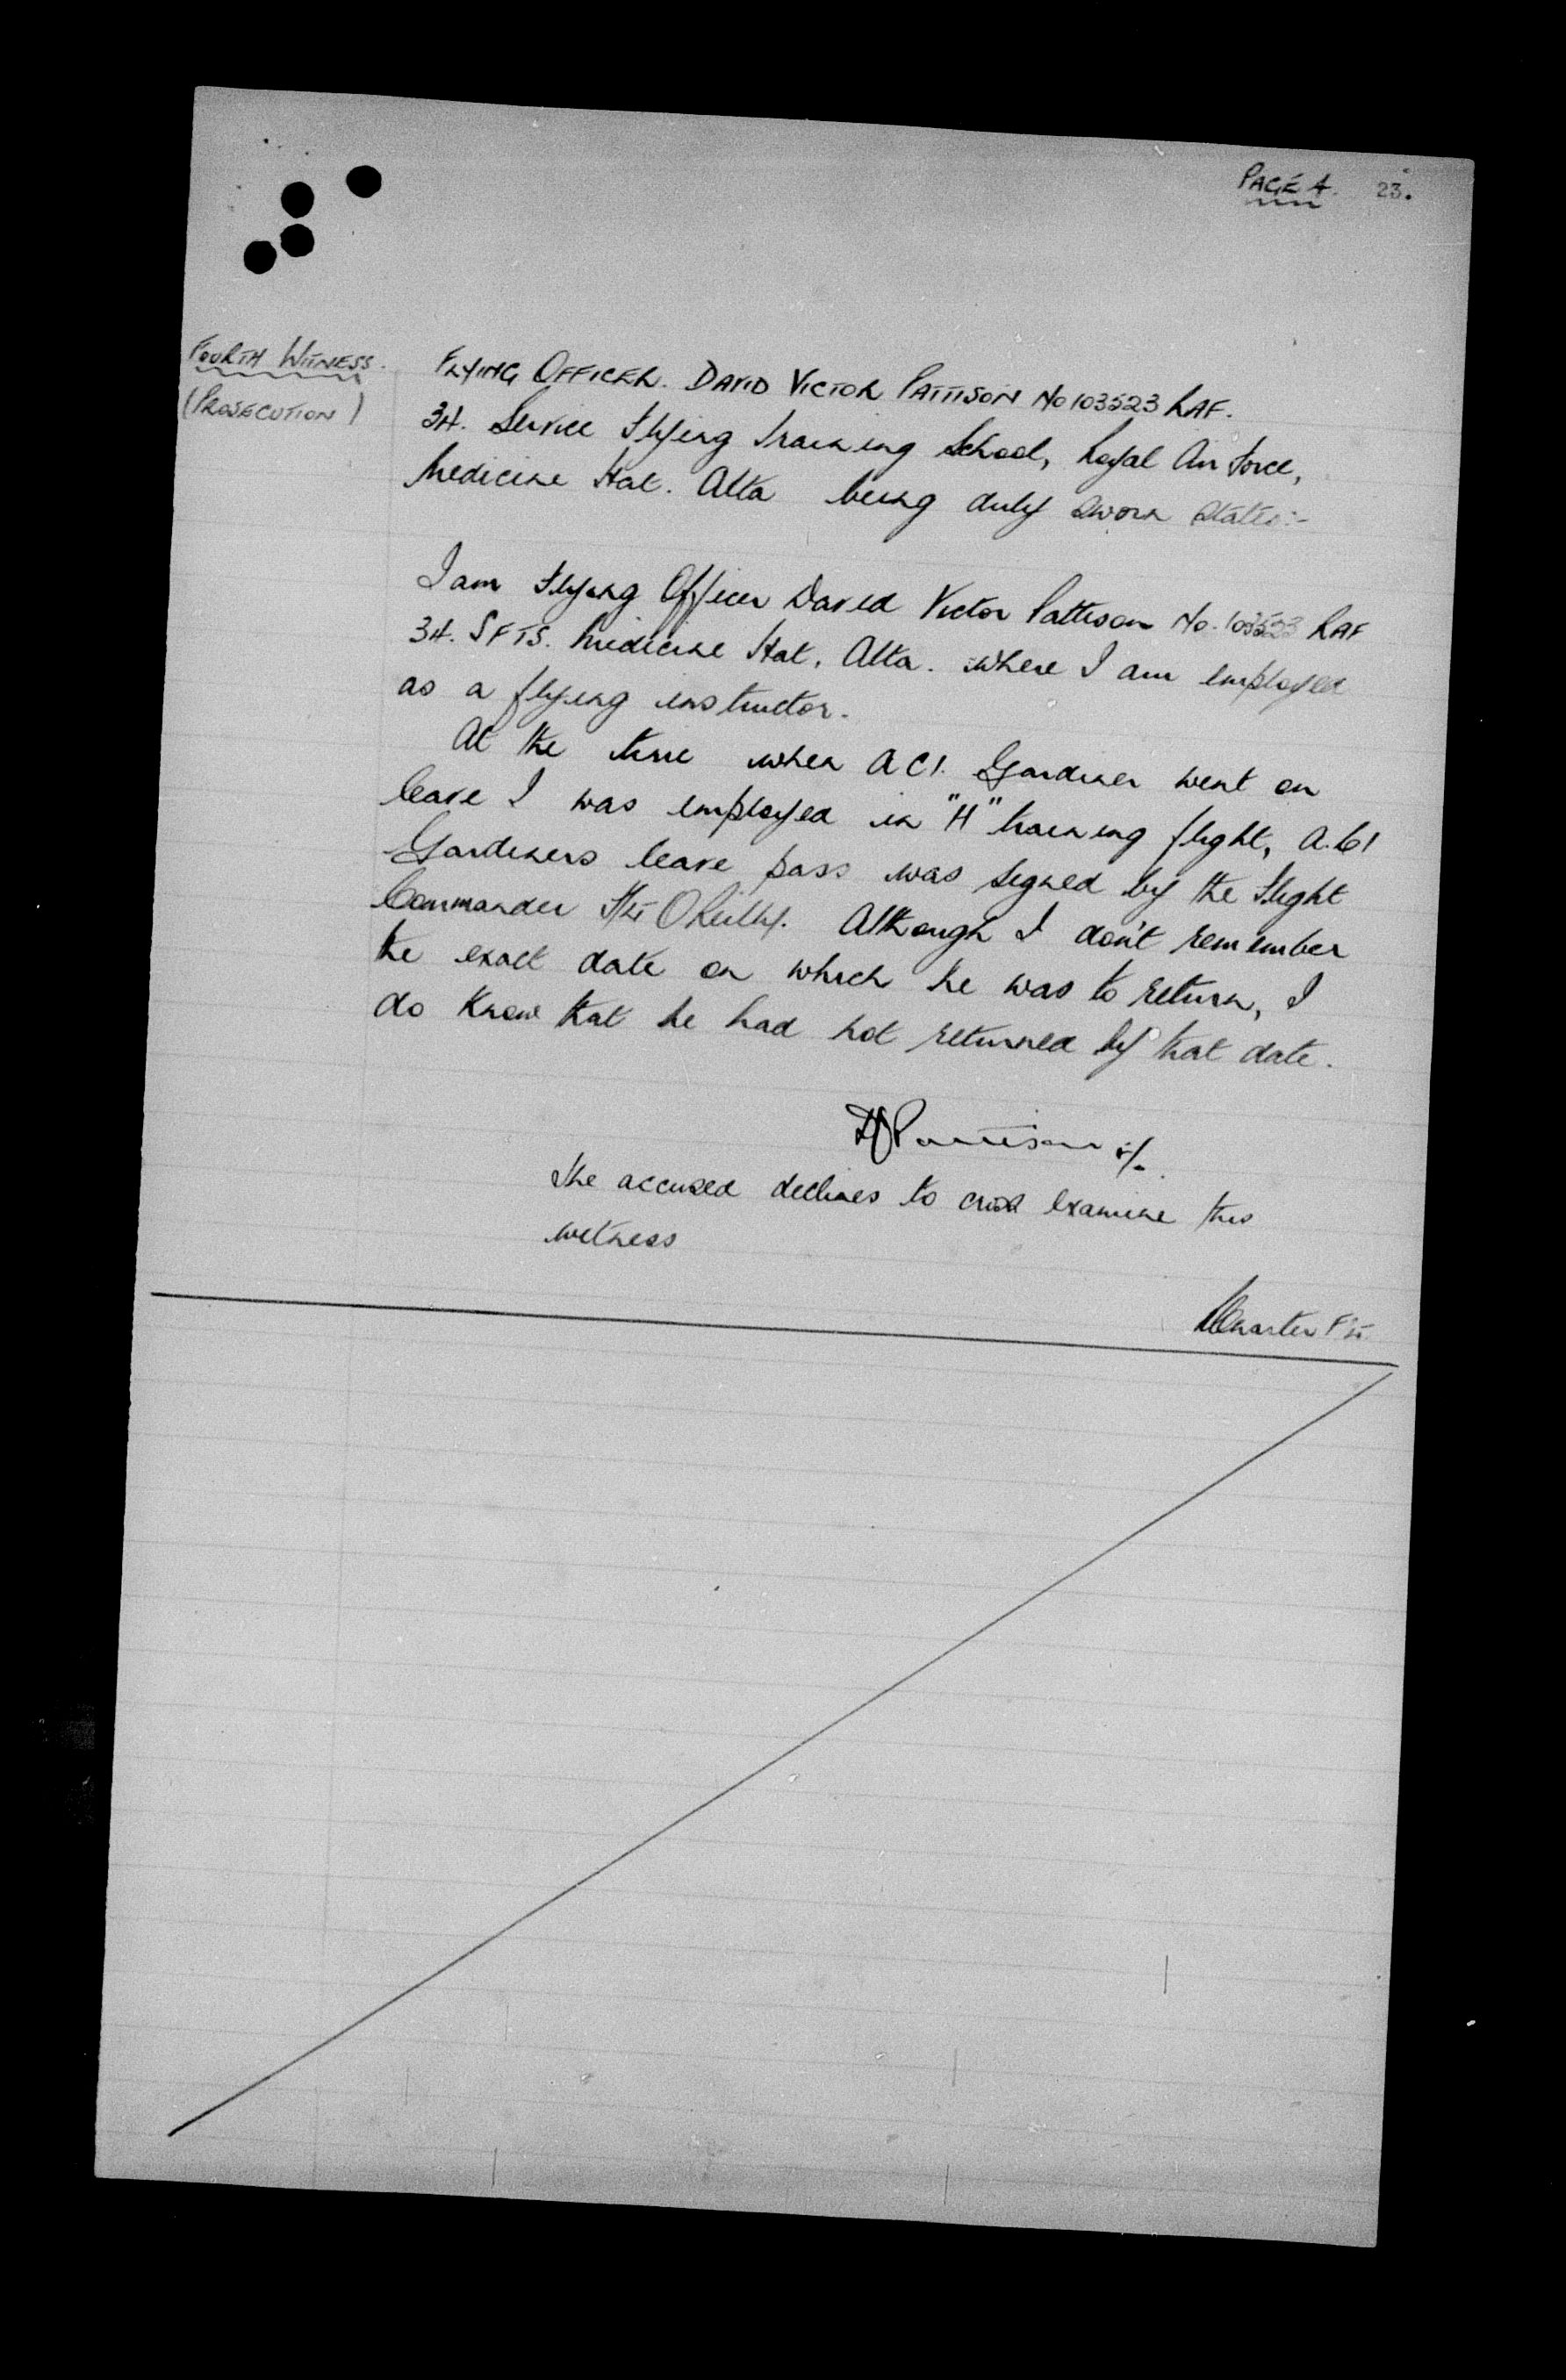 PAGE 4. 23.
FOURTH WITNESS.
(PROSECUTION)
FLYING OFFICER. DAVID VICTOR PATTISON No 103523 RAF.
34. Service Flying Training School, Royal Air Force,
Medicine Hat. Alta being duly sworn states:-
I am Flying Officer David Victor Pattison No. 103523 RAF
34. SFTS. Medicine Hat, Alta. where I am employed
as a flying instructor.
At the time when AC1. Gardiner went on
leave I was employed in "H" training flight, A.C1
Gardiners leave pass was signed by the Flight
Commander F/Lt O'Reilly. Although I don't remember
the exact date on which he was to return, I
do know that he had not returned by that date.
DVPattison F/O.
The accused declines to cross examine this
witness
F/Lt.